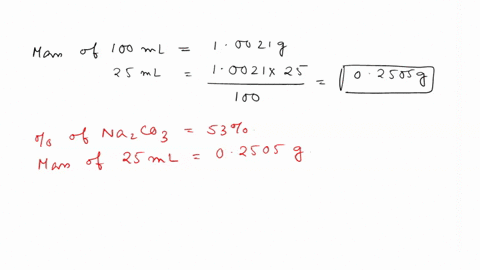 Mass of 100 mL = 1.0021 g
25 mL = 1.0021 x 25 / 100 = 0.2505 g
% of Na2CO3 = 53%.
Mass of 25 mL = 0.2505 g